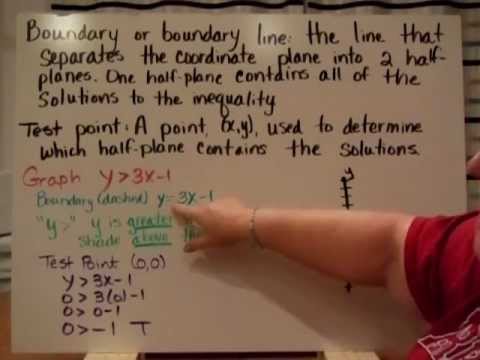 Boundary or boundary line: the line that
separates the coordinate plane into 2 half-
planes. One half-plane contains all of the
Solutions to the inequality
Test point: A point, (x,y), used to determine
which half-plane contains the solutions.
Graph y > 3x-1
Boundary (dashed) y = 3x-1
"y >" y is greater
shade above the
Test Point (0,0)
y > 3x-1
0 > 3(0)-1
0 > 0-1
0 > -1 T
y